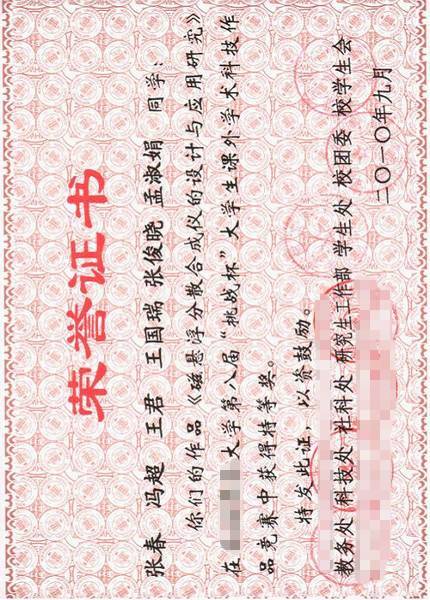 荣誉证书
张春 冯超 王君 王国瑞 张俊晓 孟淑娟 同学：
你们的作品《磁悬浮分散合成仪的设计与应用研究》
在 大学第八届“挑战杯”大学生课外学术科技作
品竞赛中获得特等奖。
特发此证，以资鼓励。
教务处 科技处 社科处 研究生工作部 学生处 校团委 校学生会
二〇一〇年九月